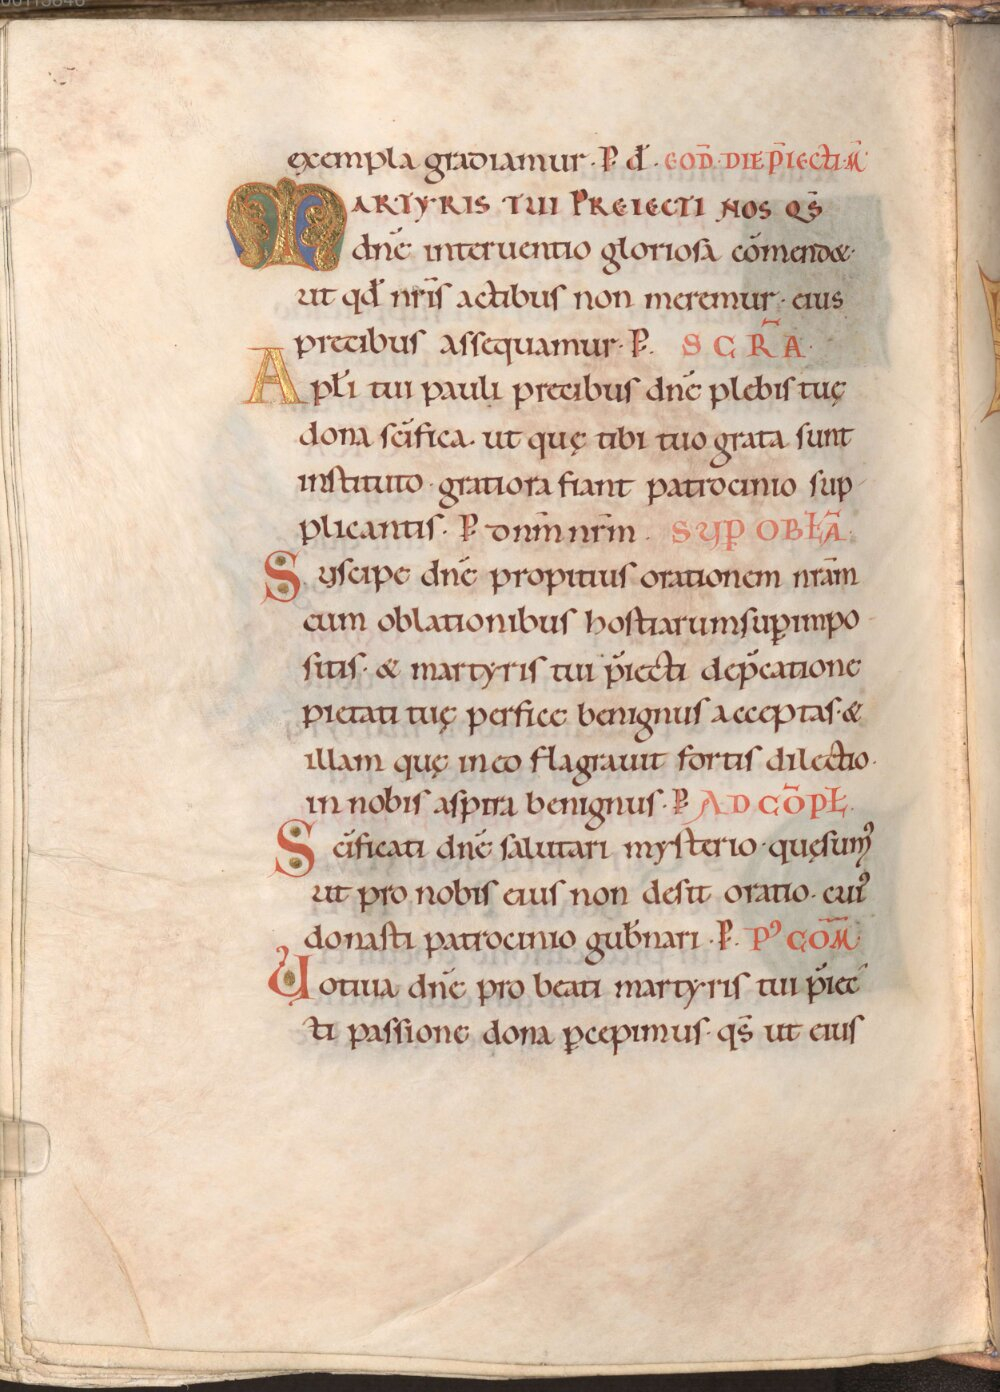 exempla gradiamur · P̲ d̄ · EOD̄ DIE P̄IECTI M̄
MARTYRIS TUI PREIECTI NOS QS̄
dn̄e interuentio gloriosa cōmendet·
ut qd̄ nr̄is actibus non meremur· eius
precibus assequamur· P̲. SCR̄A
Apl̄i tui pauli precibus dn̄e plebis tuę
dona sc̄ifica· ut quę tibi tuo grata sunt
instituto· gratiora fiant patrocinio sup
plicantis· P̲ dnm̄ nrm̄ . SUP̲ OBL̄A
Suscipe dn̄e propitius orationem nrām
cum oblationibus hostiarum sup̲impo
sitis· & martyris tui p̄iecti dep̄catione
pietati tuę perfice benignus acceptas· &
illam quę in eo flagrauit fortis dilectio·
in nobis aspira benignus· P̲ AD CŌPL̄.
Sc̄ificati dn̄e salutari mysterio· quęsumꝰ
ut pro nobis eius non desit oratio· cuiꝰ
donasti patrocinio gub̄nari · P̲. Pꝰ CŌM̄
Uotiua dn̄e pro beati martyris tui p̄iec
ti passione dona p̲cepimus· qs̄ ut eius